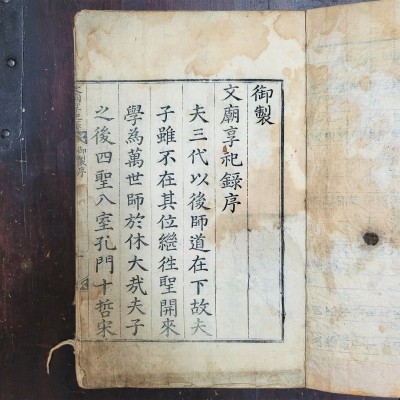 御製
文廟享祀錄序
夫三代以後師道在下故夫
子雖不在其位繼徃聖開來
學為萬世師於休大哉夫子
之後四聖八室孔門十哲宋
御製序